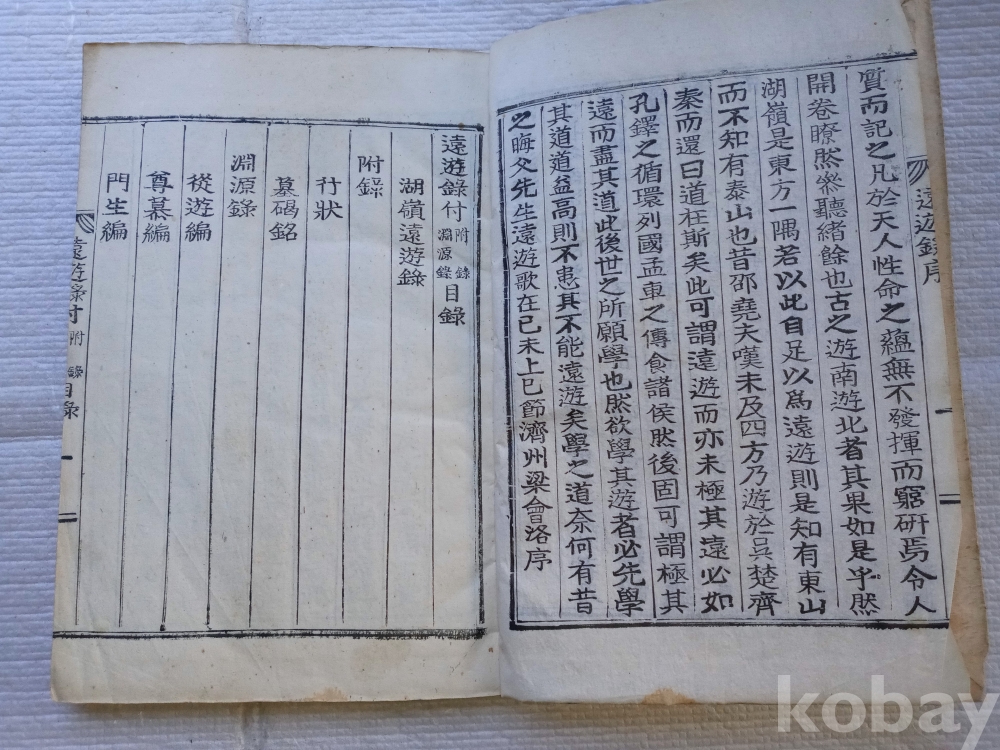 遠遊錄序
質而記之凡於天人性命之蘊無不發揮而窮硏焉令人
開卷瞭然叅聽緖餘也古之遊南遊北者其果如是乎然
湖嶺是東方一隅若以此自足以爲遠遊則是知有東山
而不知有泰山也昔邵堯夫嘆未及四方乃遊於吳楚齊
秦而還曰道在斯矣此可謂遠遊而亦未極其遠必如
孔鐸之循環列國孟車之傳食諸侯然後固可謂極其
遠而盡其道此後世之所願學也然欲學其遊者必先學
其道道益高則不患其不能遠遊矣學之道奈何有昔
之晦父先生遠遊歌在己未上巳節濟州梁會洛序
遠遊錄付附錄淵源錄目錄
湖嶺遠遊錄
附錄
行狀
墓碣銘
淵源錄
從遊編
尊慕編
門生編
遠遊錄付附錄目錄
kobay